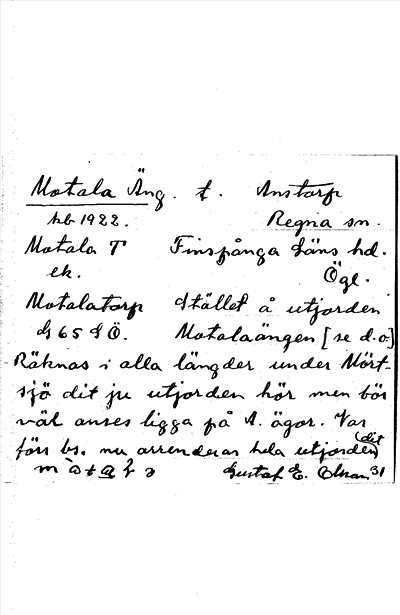 Motala Äng. t. Anstorp
hb 1922. Regna sn.
Motala T Finspånga läns hd.
ek. Ögl.
Motalatorp Stället å utjorden
G 65 SÖ. Motalaängen [se d.o.]
Räknas i alla längder under Mört-
sjö dit ju utjorden hör men bör
väl anses ligga på A. ägor. Var
förr bs. nu arrenderas hela utjorden (dit)
Gustaf E. Olson 31